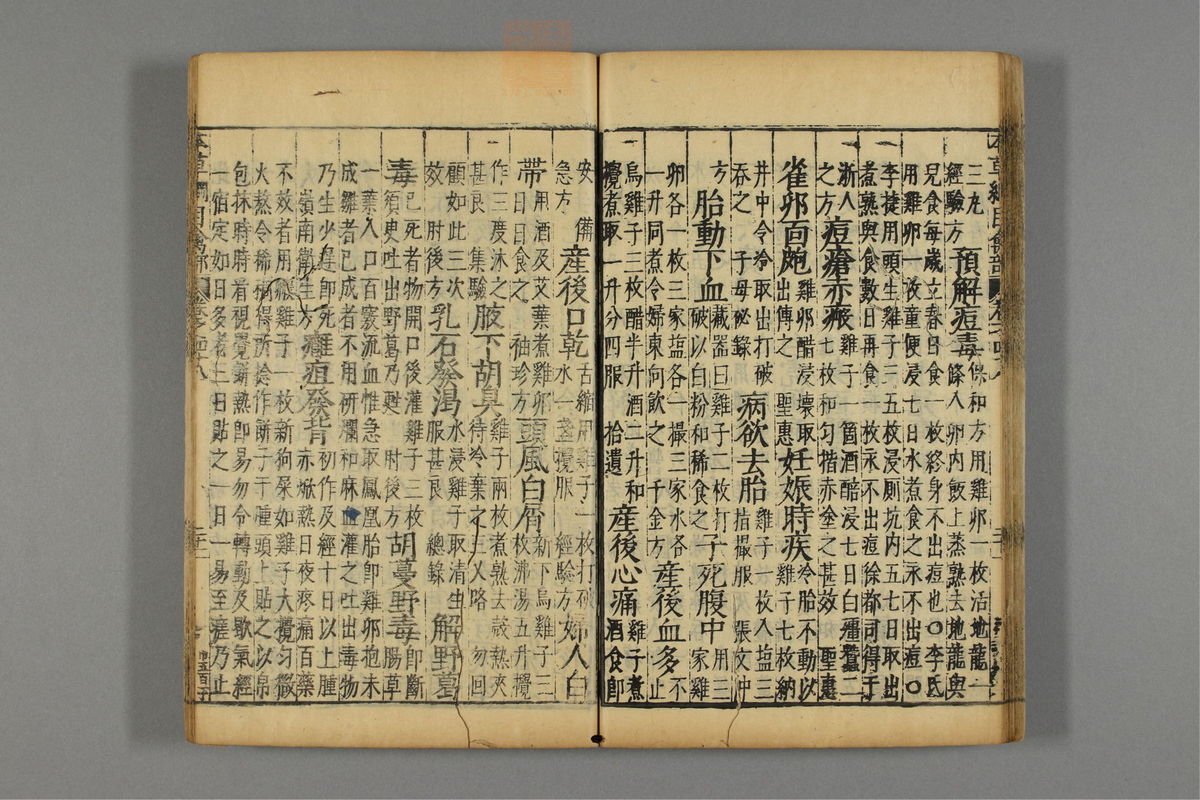 本草綱目禽部 卷之四十八
三九
經驗方 預解痘毒 保和方用雞卵一枚活地龍一
條入卵內飯上蒸熟去地龍與
兒食每歲立春日食一枚終身不出痘也○李氏
用雞卵一枚童便浸七日水煮食之永不出痘○
李捷用頭生雞子三五枚浸厠坑內五七日取出
煮熟與食數日再食一枚永不出痘徐都司得于
浙人
之方 痘瘡赤瘢 雞子一箇酒醅浸七日白殭蠶二
七枚和勻揩赤塗之甚效 聖惠
雀卵面皰 雞卵醋浸壞取
出傅之 聖惠 妊娠時疾 令胎不動以
雞子七枚納
井中令冷取出打破
吞之 子母祕錄 病欲去胎 雞子一枚入塩三
指撮服 張文仲
方 胎動下血 藏器曰雞子二枚打
破以白粉和稀食之 子死腹中 用三
家雞
卵各一枚三家塩各一撮三家水各
一升同煮令婦東向飲之 千金方 產後血多 不
止
烏雞子三枚醋半升酒二升和
攪煮取一升分四服 拾遺 產後心痛 雞子煮
酒食即
安 備
急方 產後口乾 舌縮用雞子一枚打破
水一盞攪服 經驗方 婦人白
帶 用酒及艾葉煮雞卵
日日食之 袖珍方 頭風白屑 新下烏雞子三
枚沸湯五升攪
作三度沐之
甚良 集驗 腋下胡臭 雞子兩枚煮熟去殼熱夾
待冷棄之三叉路口勿回
顧如此三次
效 肘後方 乳石發渴 水浸雞子取清生
服甚良 總錄 解野葛
毒 已死者物開口後灌雞子三枚
須臾吐出野葛乃甦 肘後方 胡蔓野毒 即斷
腸草
一葉入口百竅流血惟急取鳳凰胎即雞卵抱未
成雛者已成者不用研爛和麻油灌之吐出毒物
乃生少遲即死
嶺南衛生方 癰疽發背 初作及經十日以上腫
赤焮熱日夜疼痛百藥
不效者用毈雞子一枚新狗屎如雞子大攪勻微
火熬令稀稠得所捻作餅子于腫頭上貼之以帛
包抹時時看視覺餅熱即易勿令轉動及歇氣經
一宿定如日多者三日貼之一日一易至瘥乃止
本草綱目禽部 卷之四十八